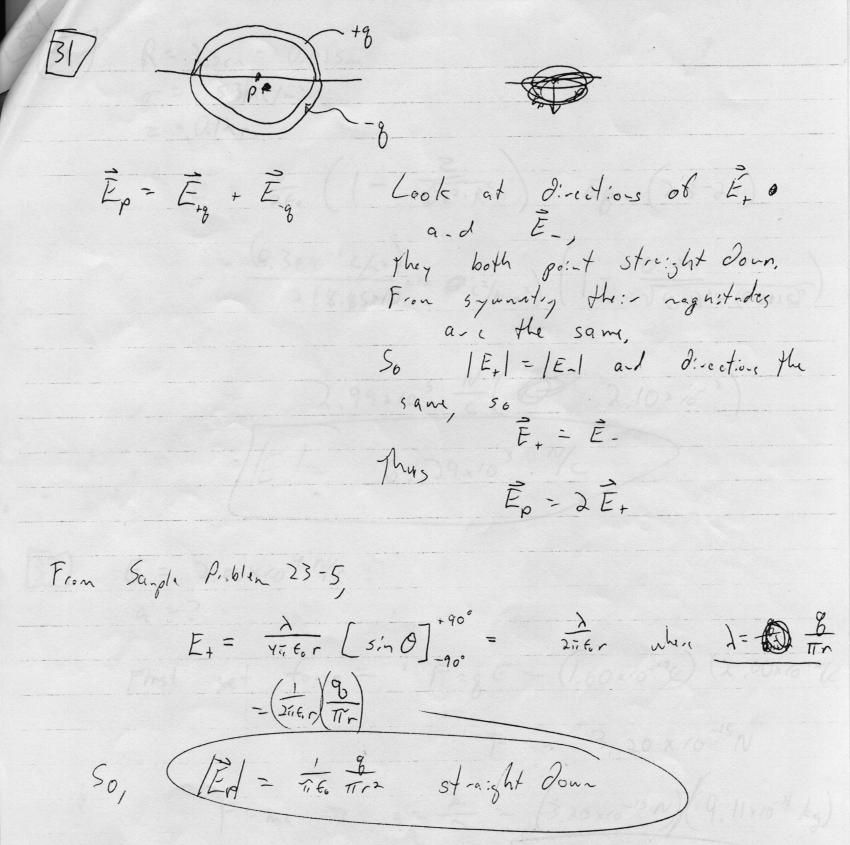 31
+q
P
-q
E⃗p = E⃗+q + E⃗-q
Look at directions of E⃗+
and E⃗-,
they both point straight down.
From symmetry their magnitudes
are the same,
So |E+| = |E-| and directions the
same, so
E⃗+ = E⃗-
Thus
E⃗p = 2 E⃗+
From Sample Problem 23-5,
E+ = λ/4πε₀r [sin θ]+90° -90° = λ/2πε₀r where λ = q/πr
= (1/2πε₀r)(q/πr)
So, |E⃗p| = 1/πε₀ q/πr² straight down